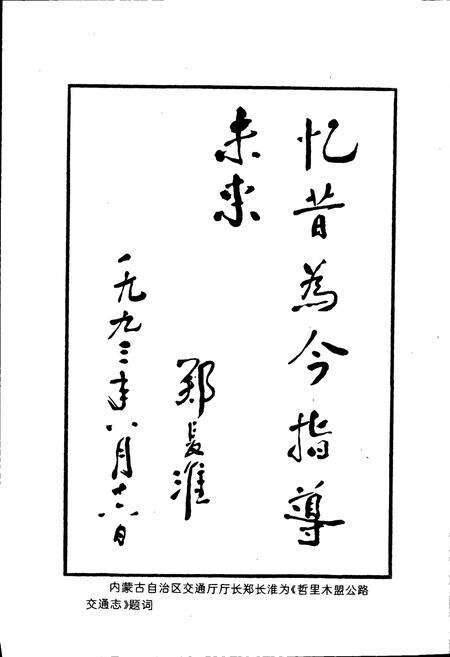 忆昔为今指导
未来
郑长淮
一九九三年八月十六日
内蒙古自治区交通厅厅长郑长淮为《哲里木盟公路
交通志》题词